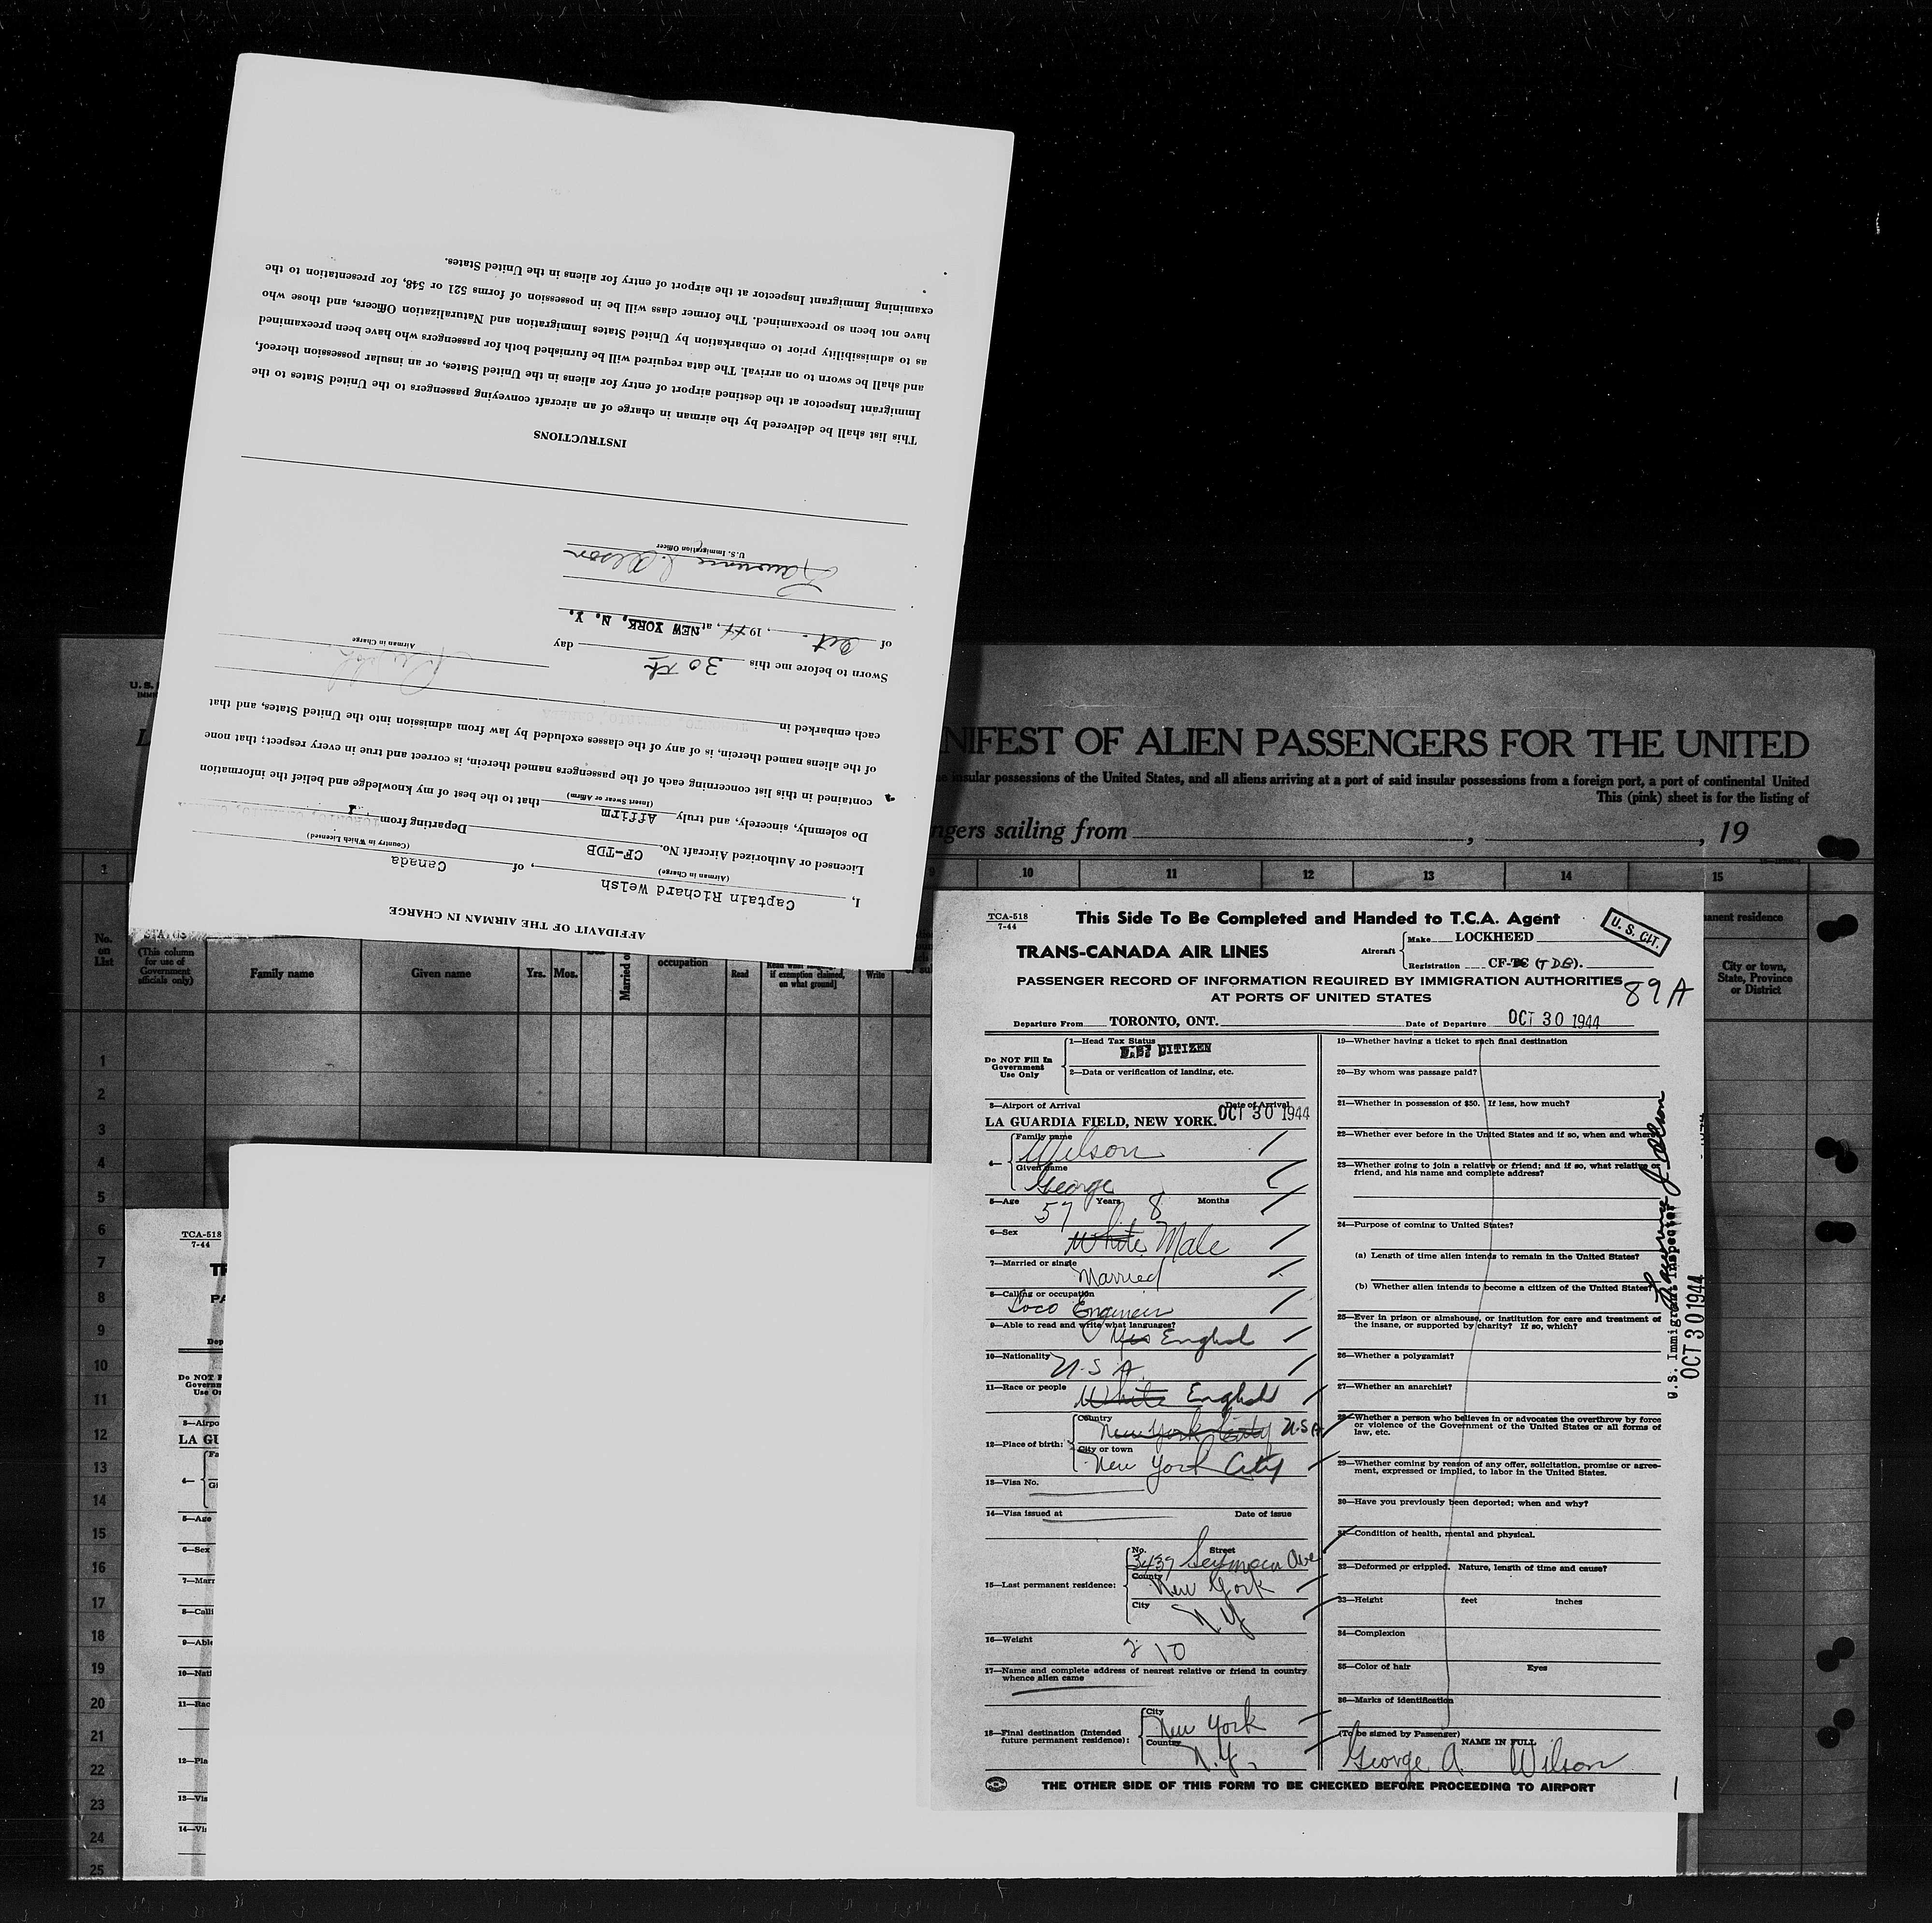 AFFIDAVIT OF THE AIRMAN IN CHARGE
I, Captain Richard Welsh, of Canada
(Airman in Charge) (Country in Which Licensed)
Licensed or Authorized Aircraft No. CF-TDB Departing from
Do solemnly, sincerely, and truly Affirm that to the best of my knowledge and belief the information
(Insert Swear or Affirm)
contained in this list concerning each of the passengers named therein, is correct and true in every respect; that none
of the aliens named therein, is of any of the classes excluded by law from admission into the United States, and that
each embarked in
Sworn before me this 30th day
of Oct. , 1944, at NEW YORK, N. Y.
Airman in Charge
U.S. Immigration Officer
INSTRUCTIONS
This list shall be delivered by the airman in charge of an aircraft conveying passengers to the United States to the
Immigrant Inspector at the destined airport of entry for aliens in the United States, or an insular possession thereof,
and shall be sworn to on arrival. The data required will be furnished both for passengers who have been preexamined
as to admissibility prior to embarkation by United States Immigration and Naturalization Officers, and those who
have not been so preexamined. The former class will be in possession of forms 521 or 548, for presentation to the
examining Immigrant Inspector at the airport of entry for aliens in the United States.
U. S.
NIFEST OF ALIEN PASSENGERS FOR THE UNITED
insular possessions of the United States, and all aliens arriving at a port of said insular possessions from a foreign port, a port of continental United
This (pink) sheet is for the listing of
ngers sailing from , , 19
1 9 10 11 12 13 14 15
No. on List
STATUS
(This column for use of Government officials only)
Family name
Given name
Yrs. Mos.
Married o
occupation
Read
if exemption claimed, on what ground]
Write
anent residence
City or town, State, Province or District
1
2
3
4
5
6
7
8
9
10
11
12
13
14
15
16
17
18
19
20
21
22
23
24
25
TCA-518
7-44
Do NOT F
Governm
Use O
3—Airpo
LA GU
4—
5—Age
6—Sex
7—Marr
8—Calli
9—Able
10—Nati
11—Rac
12—Pla
13—Vis
14—Vi
TCA-518
7-44
This Side To Be Completed and Handed to T.C.A. Agent
U. S. CIT.
TRANS-CANADA AIR LINES
Aircraft Make LOCKHEED
Registration CF- (TDB).
PASSENGER RECORD OF INFORMATION REQUIRED BY IMMIGRATION AUTHORITIES
AT PORTS OF UNITED STATES
89A
Departure From TORONTO, ONT. Date of Departure OCT 30 1944
Do NOT Fill In Government Use Only
1—Head Tax Status
U.S. CITIZEN
2—Data or verification of landing, etc.
3—Airport of Arrival Date of Arrival
LA GUARDIA FIELD, NEW YORK. OCT 30 1944
4— Family name
Wilson
Given name
George
5—Age 57 Years 8 Months
6—Sex White Male
7—Married or single Married
8—Calling or occupation
Loco Engineer
9—Able to read and write what languages?
Yes English
10—Nationality U.S.A.
11—Race or people White English
12—Place of birth: Country
New York City U.S.A
City or town
New York City
13—Visa No.
14—Visa issued at Date of issue
15—Last permanent residence: No. Street
3439 Seymour Ave
County
New York
City N Y
16—Weight 210
17—Name and complete address of nearest relative or friend in country
whence alien came
18—Final destination (Intended future permanent residence): City
New York
Country N.Y.
19—Whether having a ticket to such final destination
20—By whom was passage paid?
21—Whether in possession of $50. If less, how much?
22—Whether ever before in the United States and if so, when and where
23—Whether going to join a relative or friend; and if so, what relative or
friend, and his name and complete address?
24—Purpose of coming to United States?
(a) Length of time alien intends to remain in the United States?
(b) Whether alien intends to become a citizen of the United States?
25—Ever in prison or almshouse, or institution for care and treatment of
the insane, or supported by charity? If so, which?
26—Whether a polygamist?
27—Whether an anarchist?
28—Whether a person who believes in or advocates the overthrow by force
or violence of the Government of the United States or all forms of
law, etc.
29—Whether coming by reason of any offer, solicitation, promise or agree-
ment, expressed or implied, to labor in the United States.
30—Have you previously been deported; when and why?
31—Condition of health, mental and physical.
32—Deformed or crippled. Nature, length of time and cause?
33—Height feet inches
34—Complexion
35—Color of hair Eyes
36—Marks of identification
(To be signed by Passenger) NAME IN FULL
George A Wilson
U.S. Immigrant Inspector
OCT 30 1944
THE OTHER SIDE OF THIS FORM TO BE CHECKED BEFORE PROCEEDING TO AIRPORT